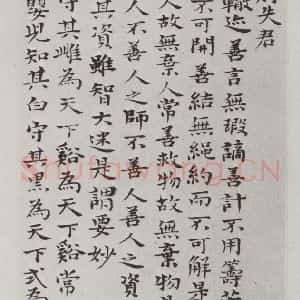 失君
轍迹善言無瑕謫善計不用籌
不可開善結無繩約而不可解是
人故無棄人常善救物故無棄物是
人不善人之師不善人善人之資
其資雖智大迷是謂要妙
守其雌為天下谿為天下谿常
嬰兒知其白守其黑為天下式為
Shufawang.CN